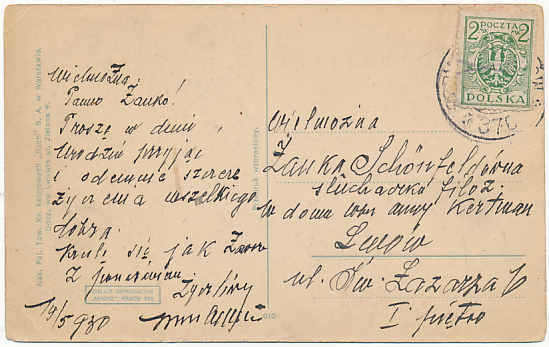 Wielmożna
Panno Żanko!
Proszę w dniu
Urodzin przyjąć
i odemnie szczere
życzenia wszelkiego
dobra.
kreśli się jak
Z poważaniem
Życzliwy
19/5 930
Nak. Pol. Tow. Ks. kolejowych „Ruch" S. A. w Warszawie.
Oddz. we Lwowie ul. Zielona 6.
ZAKŁADY REPRODUKCYJNE
„AKROPOL", KRAKÓW XXII.
010
Przedruk wzbroniony.
2 POCZTA 2
MK MK
POLSKA
370
Wielmożna
Żanka Schönfeldówna
słuchaczka filoz.
w domu Anny Kertman
Lwów
ul. Św. Łazarza 6
I piętro